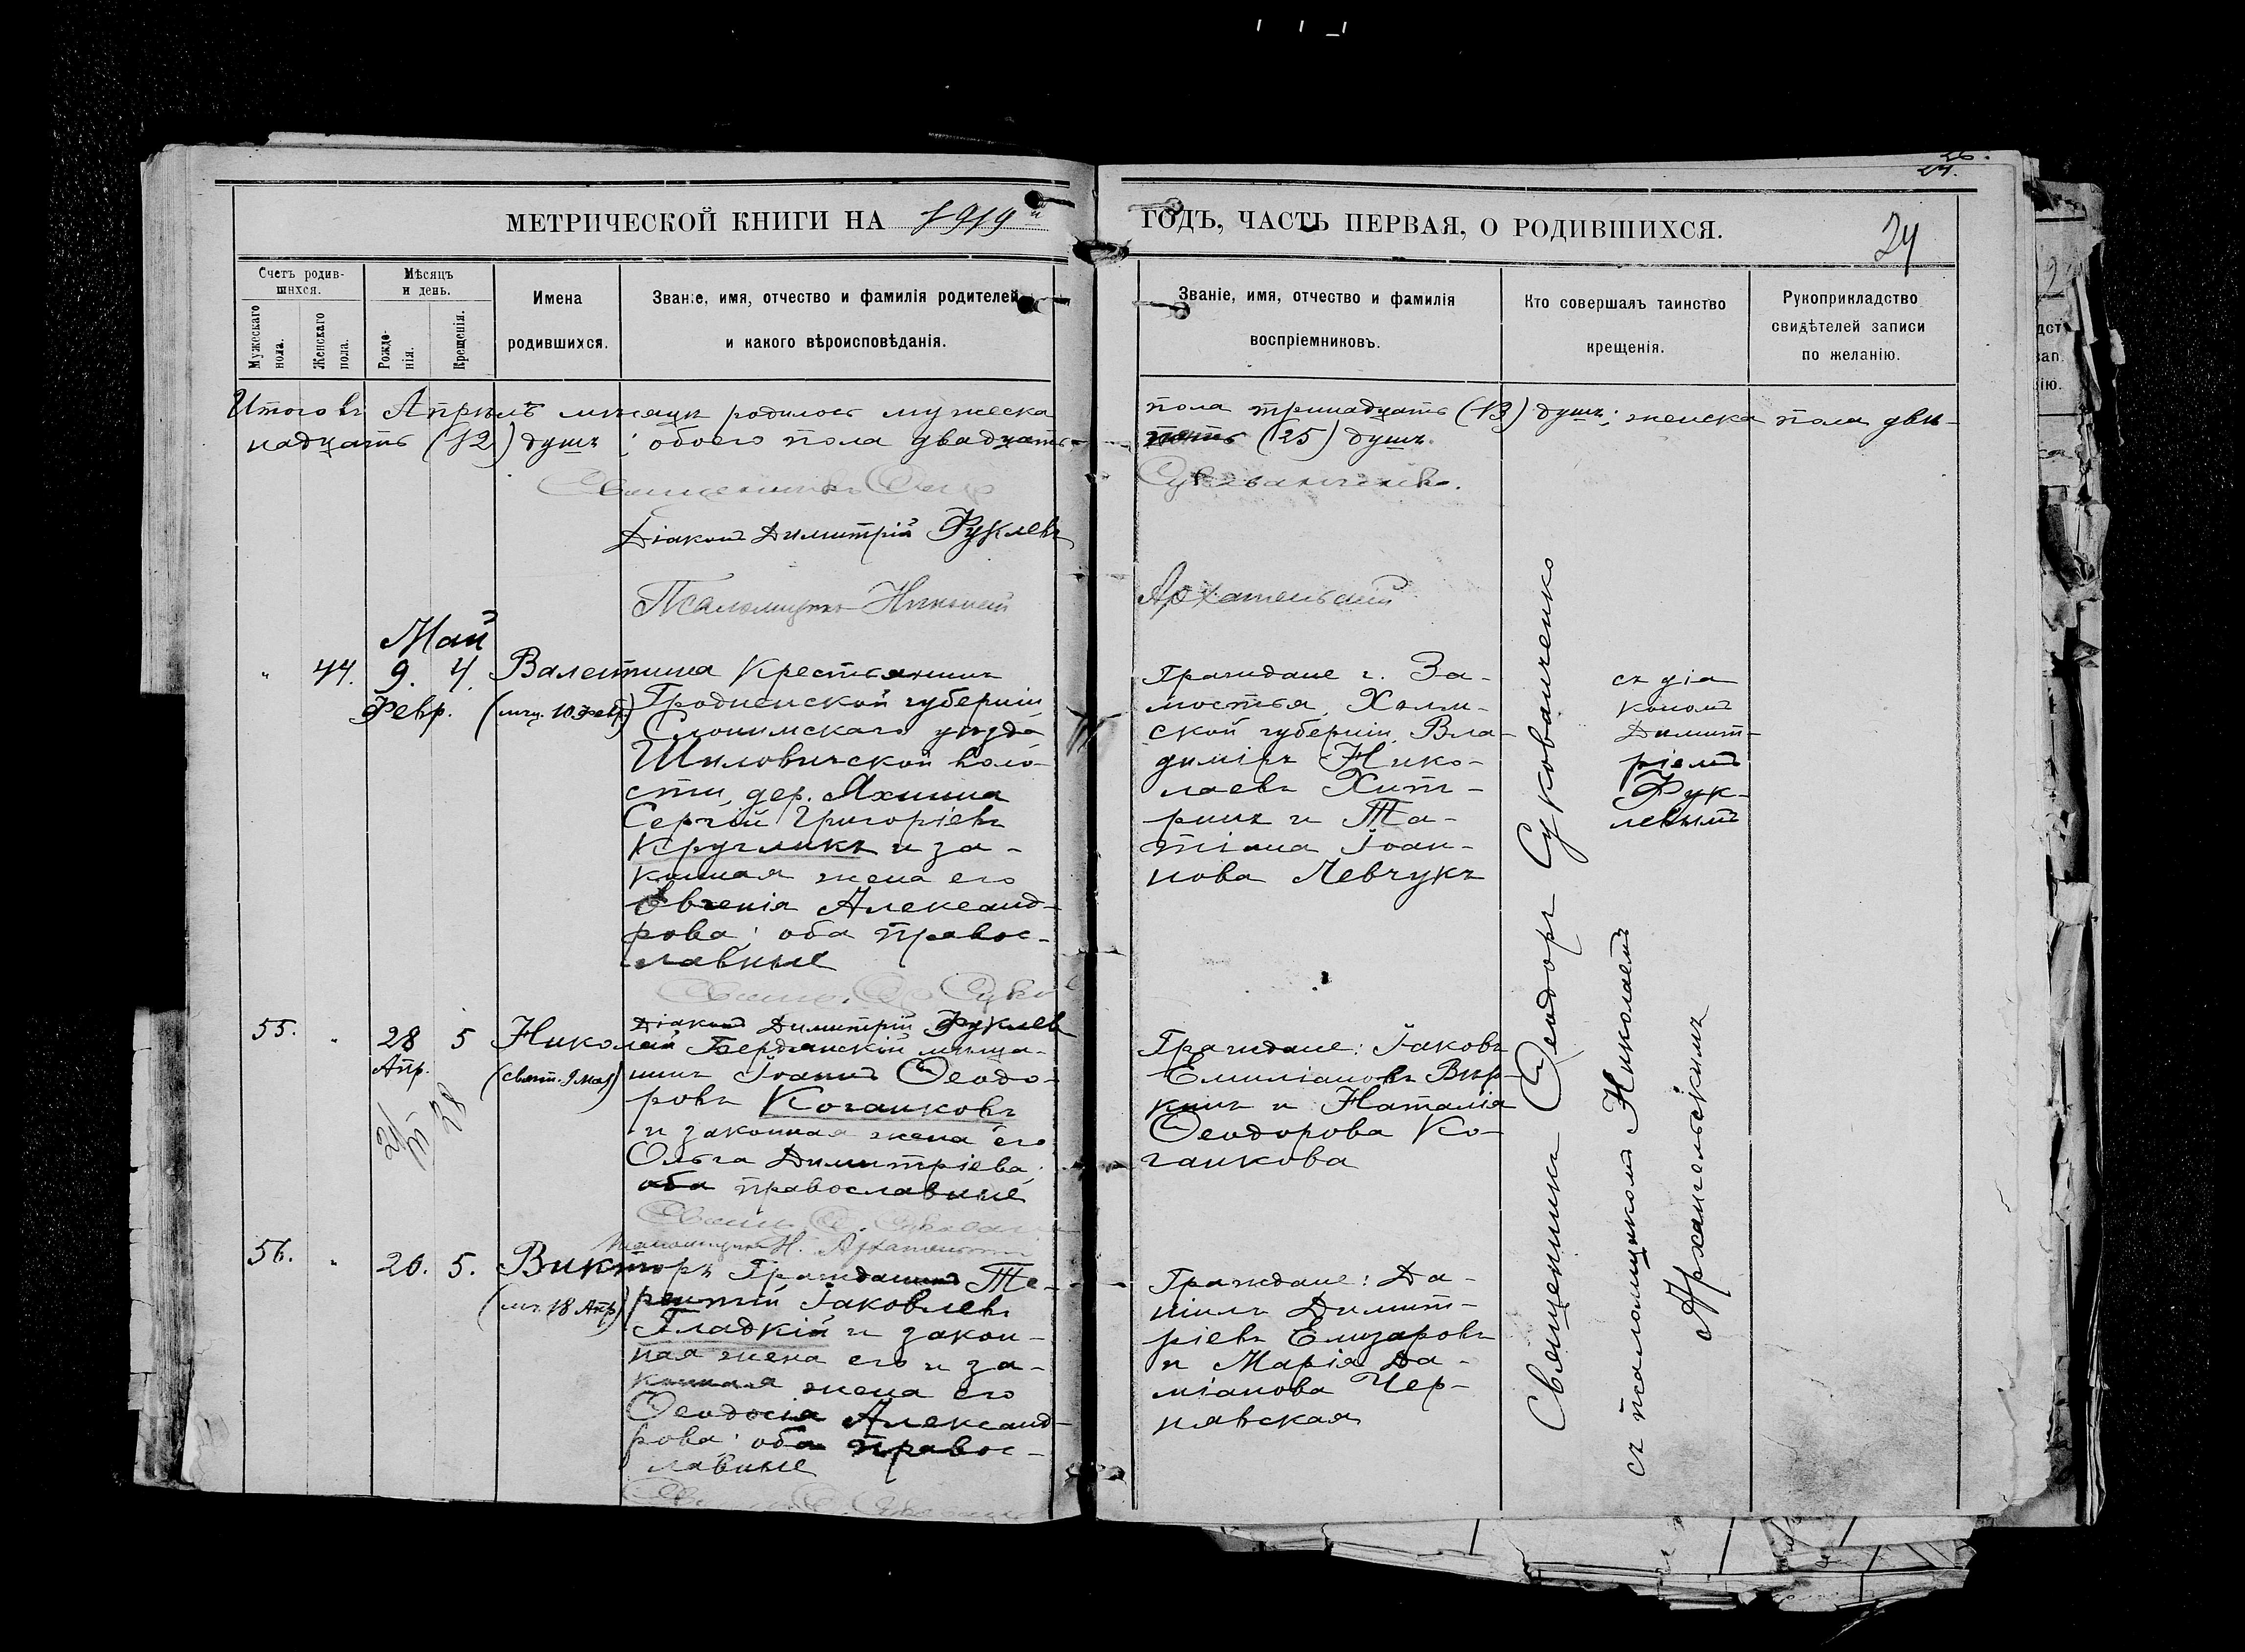 26.
24.
МЕТРИЧЕСКОЙ КНИГИ НА 1919й
ГОДЪ, ЧАСТЬ ПЕРВАЯ, О РОДИВШИХСЯ.
24
Счетъ родив-
шихся.
Мужескаго
пола.
Женскаго
пола.
Мѣсяцъ
и день.
Рожде-
нія.
Крещенія.
Имена
родившихся.
Званіе, имя, отчество и фамилія родителей
и какого вѣроисповѣданія.
Званіе, имя, отчество и фамилія
воспріемниковъ.
Кто совершалъ таинство
крещенія.
Рукоприкладство
свидѣтелей записи
по желанію.
Итого въ Апрѣлѣ мѣсяцѣ родилось мужеска
пола тринадцать (13) душъ; женска пола двѣ-
надцать (12) душъ; обоего пола двадцать-
пять (25) душъ.
Священникъ Ѳеодоръ
Сукованченко.
Діаконъ Димитрій Фуклевъ
Псаломщикъ Николай
Архангельскій
Май
44. 9. 4. Валентина
Февр. (мчц. 10 Февр.)
Крестьянинъ
Гродненской губерніи,
Слонимскаго уѣзда
Шиловичской воло-
сти, дер. Яхнина
Сергій Григоріевъ
Кругликъ и за-
конная жена его
Евгенія Александ-
рова; оба правос-
лавные
Граждане г. За-
мостья, Холм-
ской губерніи, Вла-
диміръ Нико-
лаевъ Хит-
ринъ и Та-
тіана Іоан-
нова Левчукъ
съ діа
кономъ
Димит-
ріемъ
Фук-
левымъ
Діаконъ Димитрій Фуклевъ
55. 28 5 Николай
Апр. (свят. 9 мая)
Бердянскій мѣща-
нинъ Іоаннъ Ѳеодо-
ровъ Коганковъ
и законная жена его
Ольга Димитріева;
оба православные
Граждане: Іаковъ
Емиліановъ Вир-
кинъ и Наталія
Ѳеодорова Ко-
ганкова
Псаломщикъ Н. Архангельскій
56. 20. 5. Викторъ
(мч. 18 Апр)
Гражданинъ Те-
рентій Іаковлевъ
Гладкій и закон-
ная жена его и за-
конная жена его
Ѳеодосія Александ-
рова; оба правос-
лавные
Граждане: Да-
ніилъ Димит-
ріевъ Елизаровъ
и Марія Да-
міанова Чер-
нявская
Священникъ Ѳеодоръ Сукованченко
съ псаломщикомъ Николаемъ
Архангельскимъ